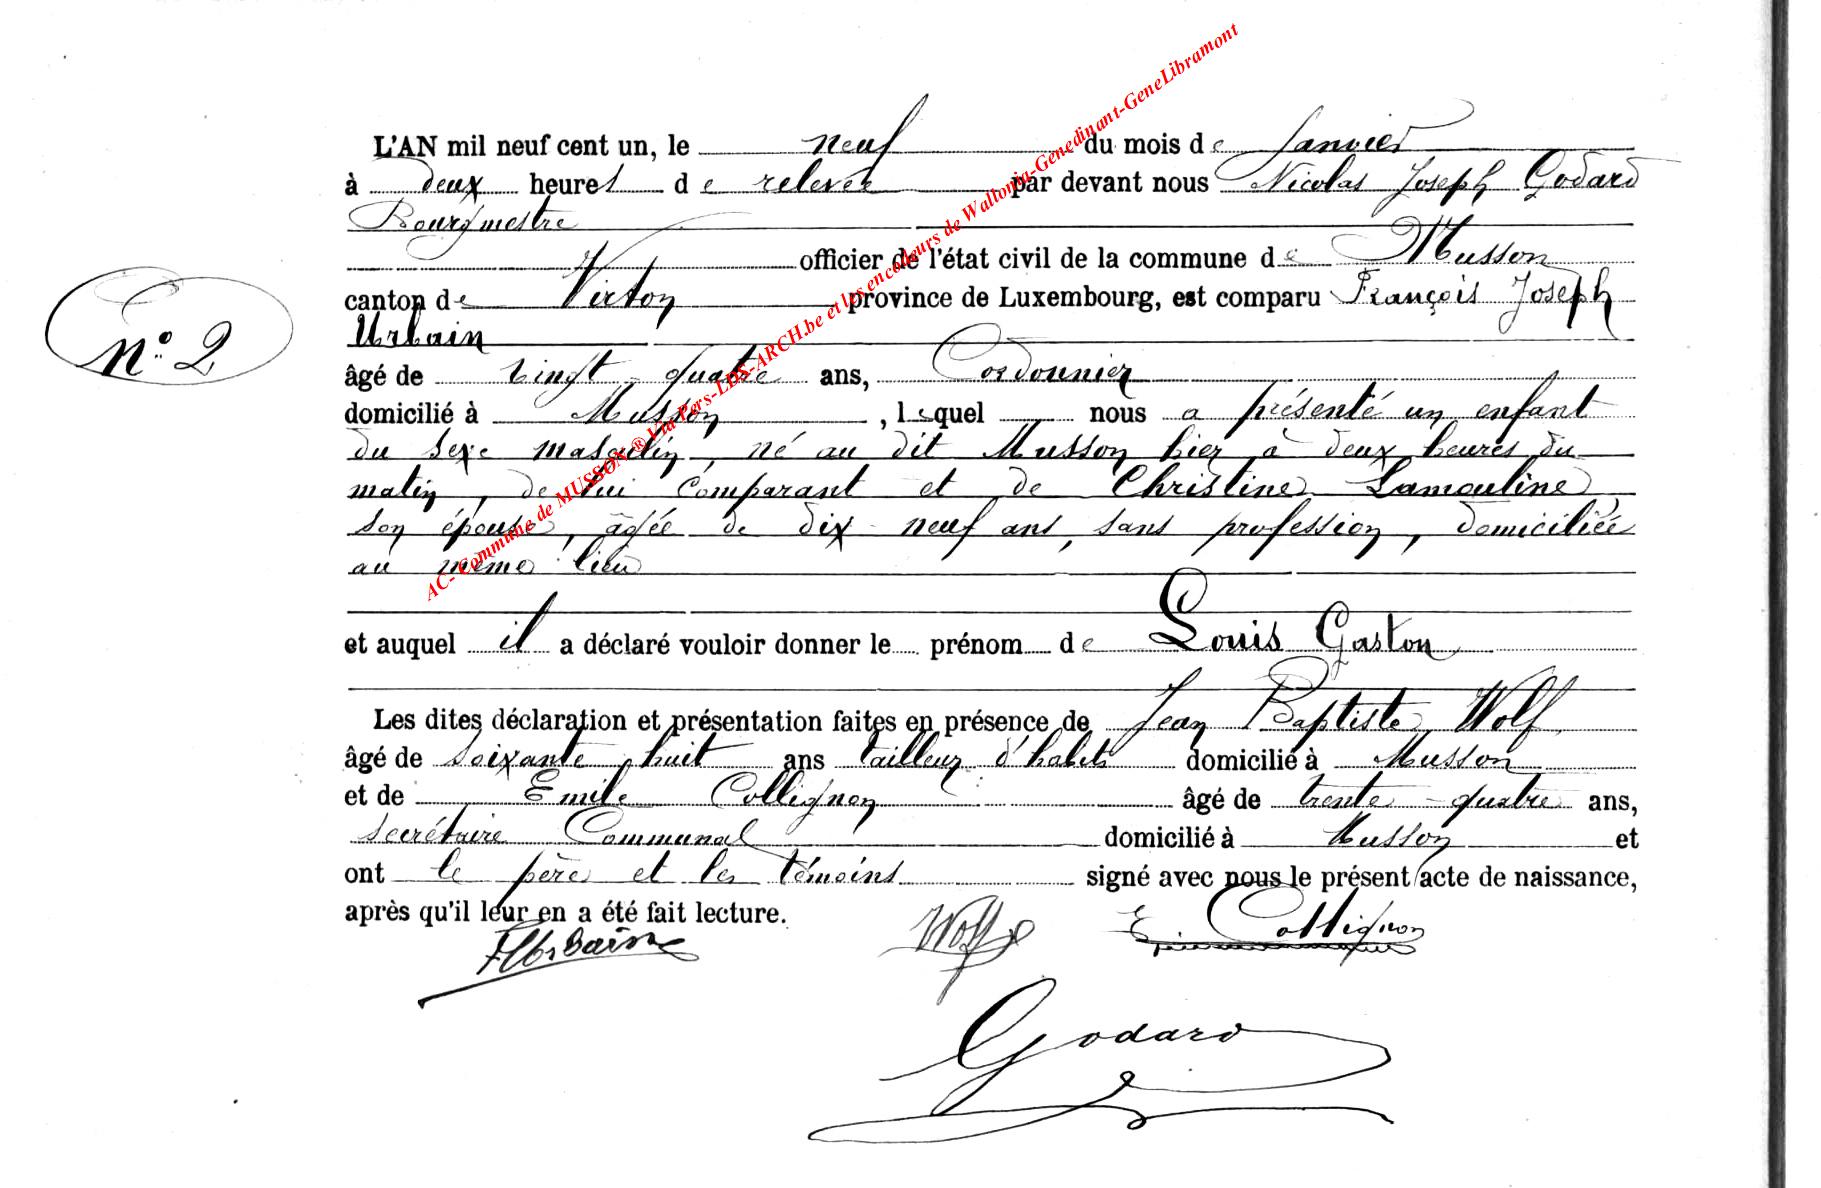 L'AN mil neuf cent un, le neuf du mois de Janvier
à deux heures de relevée par devant nous Nicolas Joseph Godard
Bourgmestre
officier de l'état civil de la commune de Musson
canton de Virton province de Luxembourg, est comparu François Joseph
Urbain
N° 2
âgé de vingt-quatre ans, Cordonnier
domicilié à Musson, lequel nous a présenté un enfant
du sexe masculin, né au dit Musson hier à deux heures du
matin, de lui comparant et de Christine Lamouline,
son épouse, âgée de dix-neuf ans, sans profession, domiciliée
au même lieu
et auquel il a déclaré vouloir donner le prénom de Louis Gaston
Les dites déclaration et présentation faites en présence de Jean Baptiste Wolf,
âgé de soixante-huit ans tailleur d'habits domicilié à Musson
et de Emile Collignon âgé de trente-quatre ans,
secrétaire Communal domicilié à Musson et
ont le père et les témoins signé avec nous le présent acte de naissance,
après qu'il leur en a été fait lecture.
FUrbain Wolf E Collignon
Godard
AC- Commune de MUSSON ® Via Pers-LDS-ARCH.be et les encodeurs de Wallonia-Genedinant-GeneLibramont